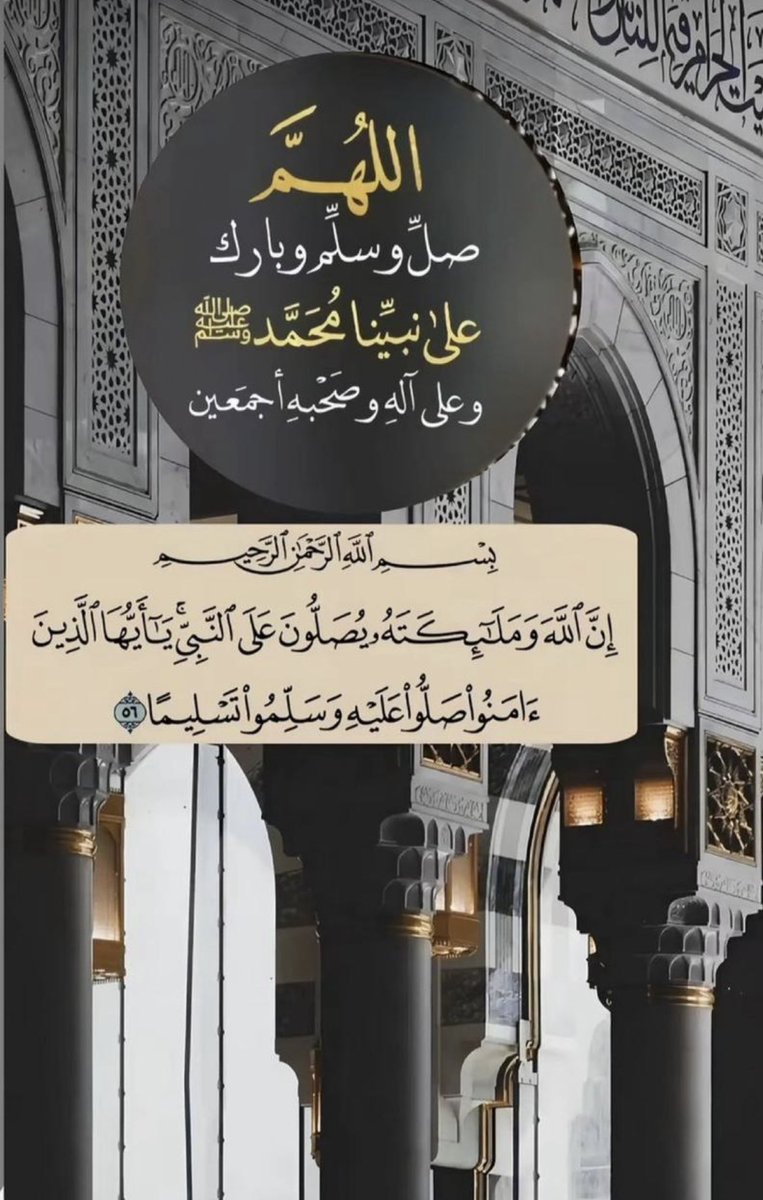 يت الحرام قيما للناس
اللَّهُمَّ
صلِّ وسلِّم وبارك
على نبيِّنا مُحَمَّد ﷺ
وعلى آلهِ وصَحْبهِ أجمَعين
بِسْمِ ٱللَّهِ ٱلرَّحْمَٰنِ ٱلرَّحِيمِ
إِنَّ ٱللَّهَ وَمَلَٰٓئِكَتَهُۥ يُصَلُّونَ عَلَى ٱلنَّبِيِّۚ يَٰٓأَيُّهَا ٱلَّذِينَ
ءَامَنُوا۟ صَلُّوا۟ عَلَيْهِ وَسَلِّمُوا۟ تَسْلِيمًا ٥٦